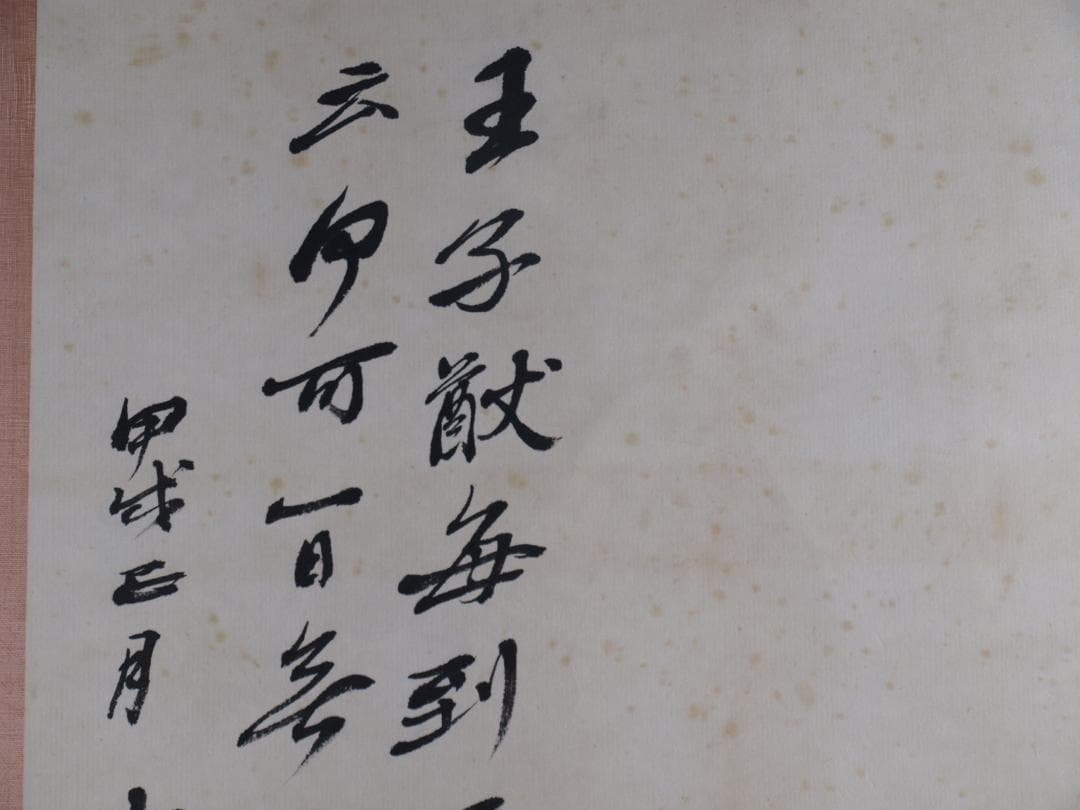 王子猷每到
云何可一日無
甲戌正月